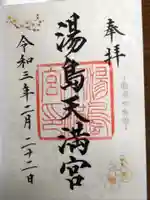 奉拝
湯島天満宮
令和三年二月二十二日